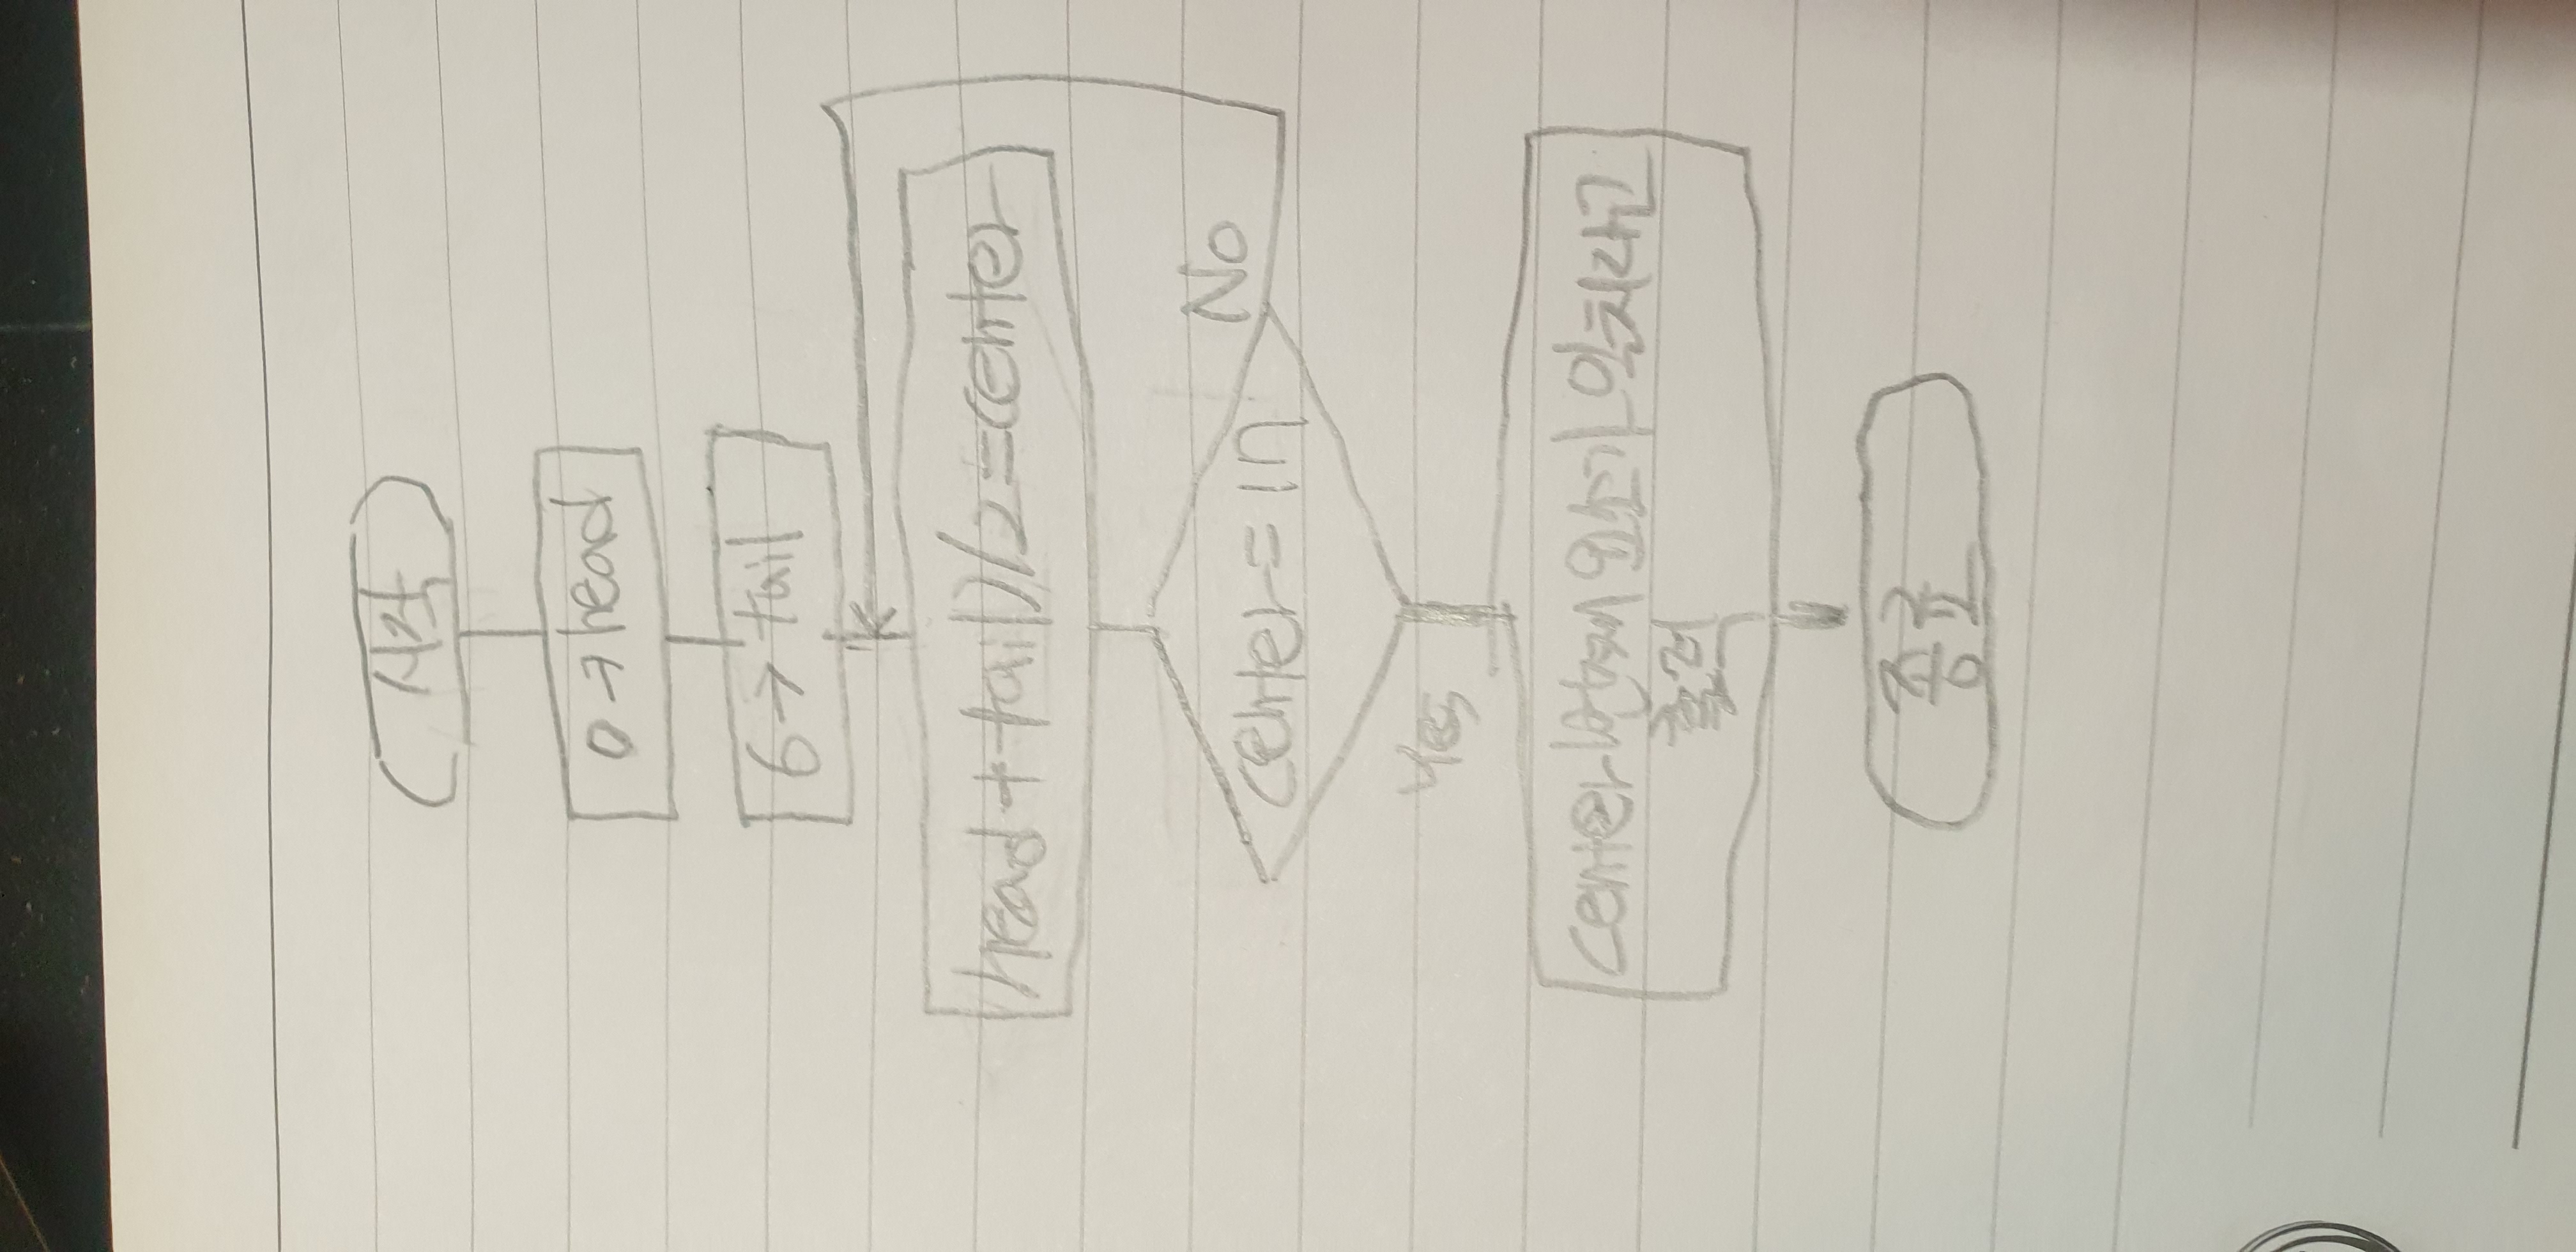 시작
0→head
6→tail
(head+tail)/2=center
center=17
No
Yes
center번째 요소가 일치라고
출력
종료